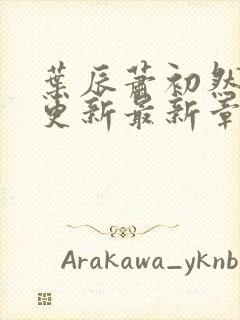 葉辰蕭初然
更新最新章
Arakawa_yknb